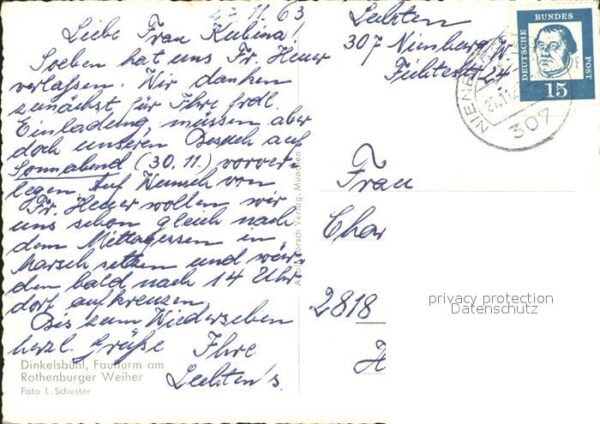 27.11.63
Liebe Frau Kubina!
Soeben hat uns Fr. Heuer
verlassen. Wir danken
zunächst für Ihre frdl.
Einladung, müssen aber
doch unseren Besuch auf
Sonnabend (30.11.) vorver-
legen. Auf Wunsch von
Fr. Heuer wollen wir
uns schon gleich nach
dem Mittagessen in
Marsch setzen und wür-
den bald nach 14 Uhr
dort aufkreuzen.
Bis zum Wiedersehen
herzl. Grüße Ihre
Lechten's.
Dinkelsbühl, Faulturm am
Rothenburger Weiher
Foto L. Schuster
Verlag, München
Lechten
307 Nienburg/W
24
DEUTSCHE
BUNDES
POST
15
307
Frau
Char
2818
H
privacy protection
Datenschutz